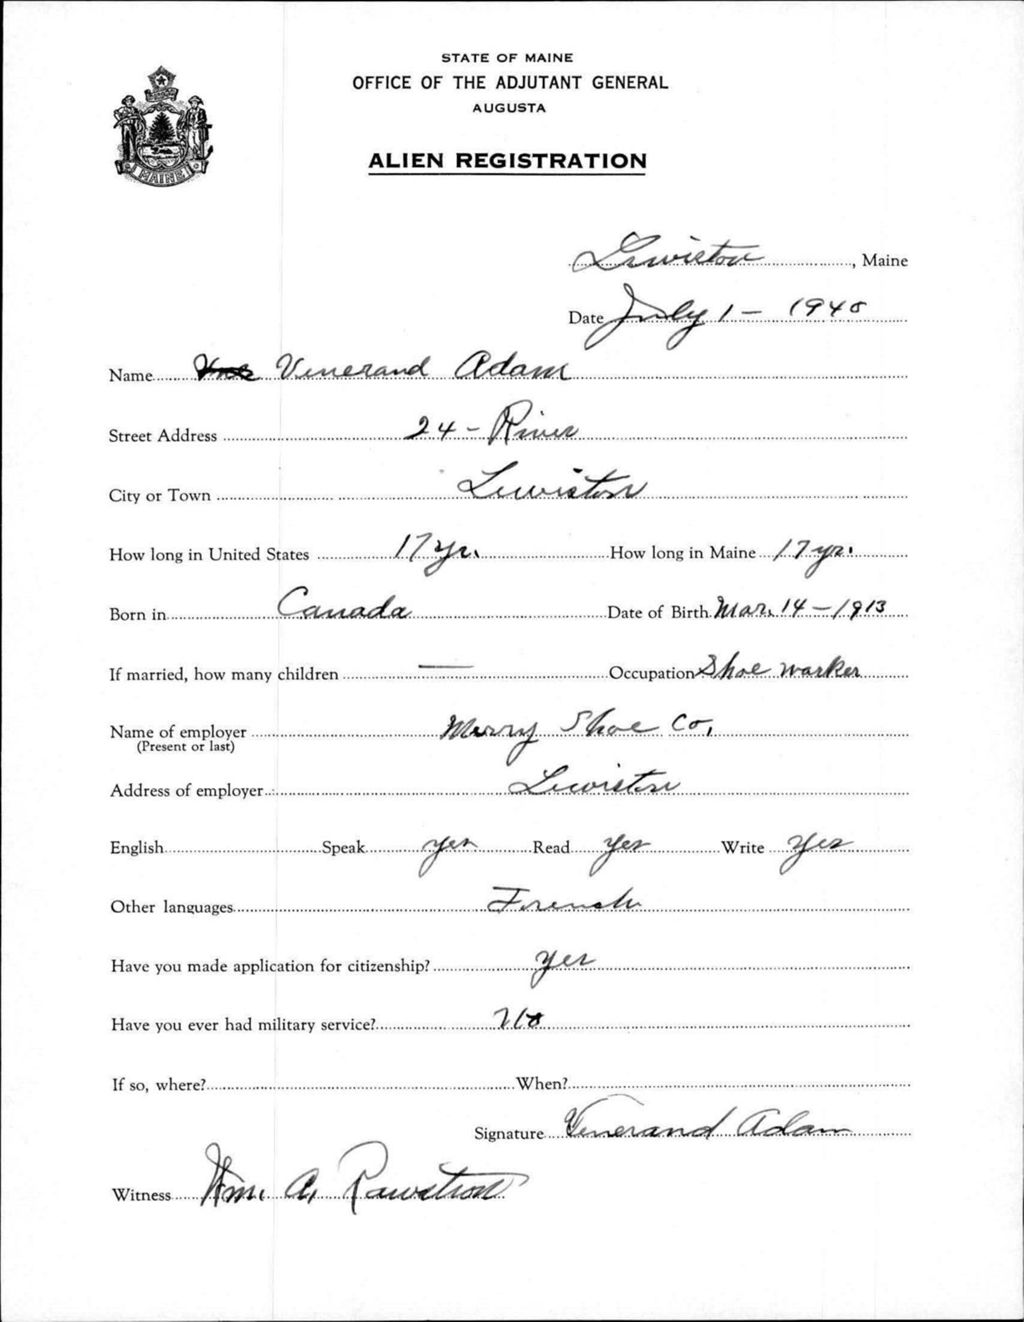 STATE OF MAINE
OFFICE OF THE ADJUTANT GENERAL
AUGUSTA
ALIEN REGISTRATION
MAINE
Lewiston, Maine
Date July 1 - 1940
Name Venerand Adam
Street Address 24 - River
City or Town Lewiston
How long in United States 17 yr. How long in Maine 17 yr.
Born in Canada Date of Birth Mar. 14 - 1913
If married, how many children — Occupation Shoe worker
Name of employer Merry Shoe Co.
(Present or last)
Address of employer Lewiston
English Speak yes Read Yes Write Yes
Other languages French
Have you made application for citizenship? Yes
Have you ever had military service? No
If so, where? When?
Signature Venerand Adam
Witness Wm. A. Rawstron